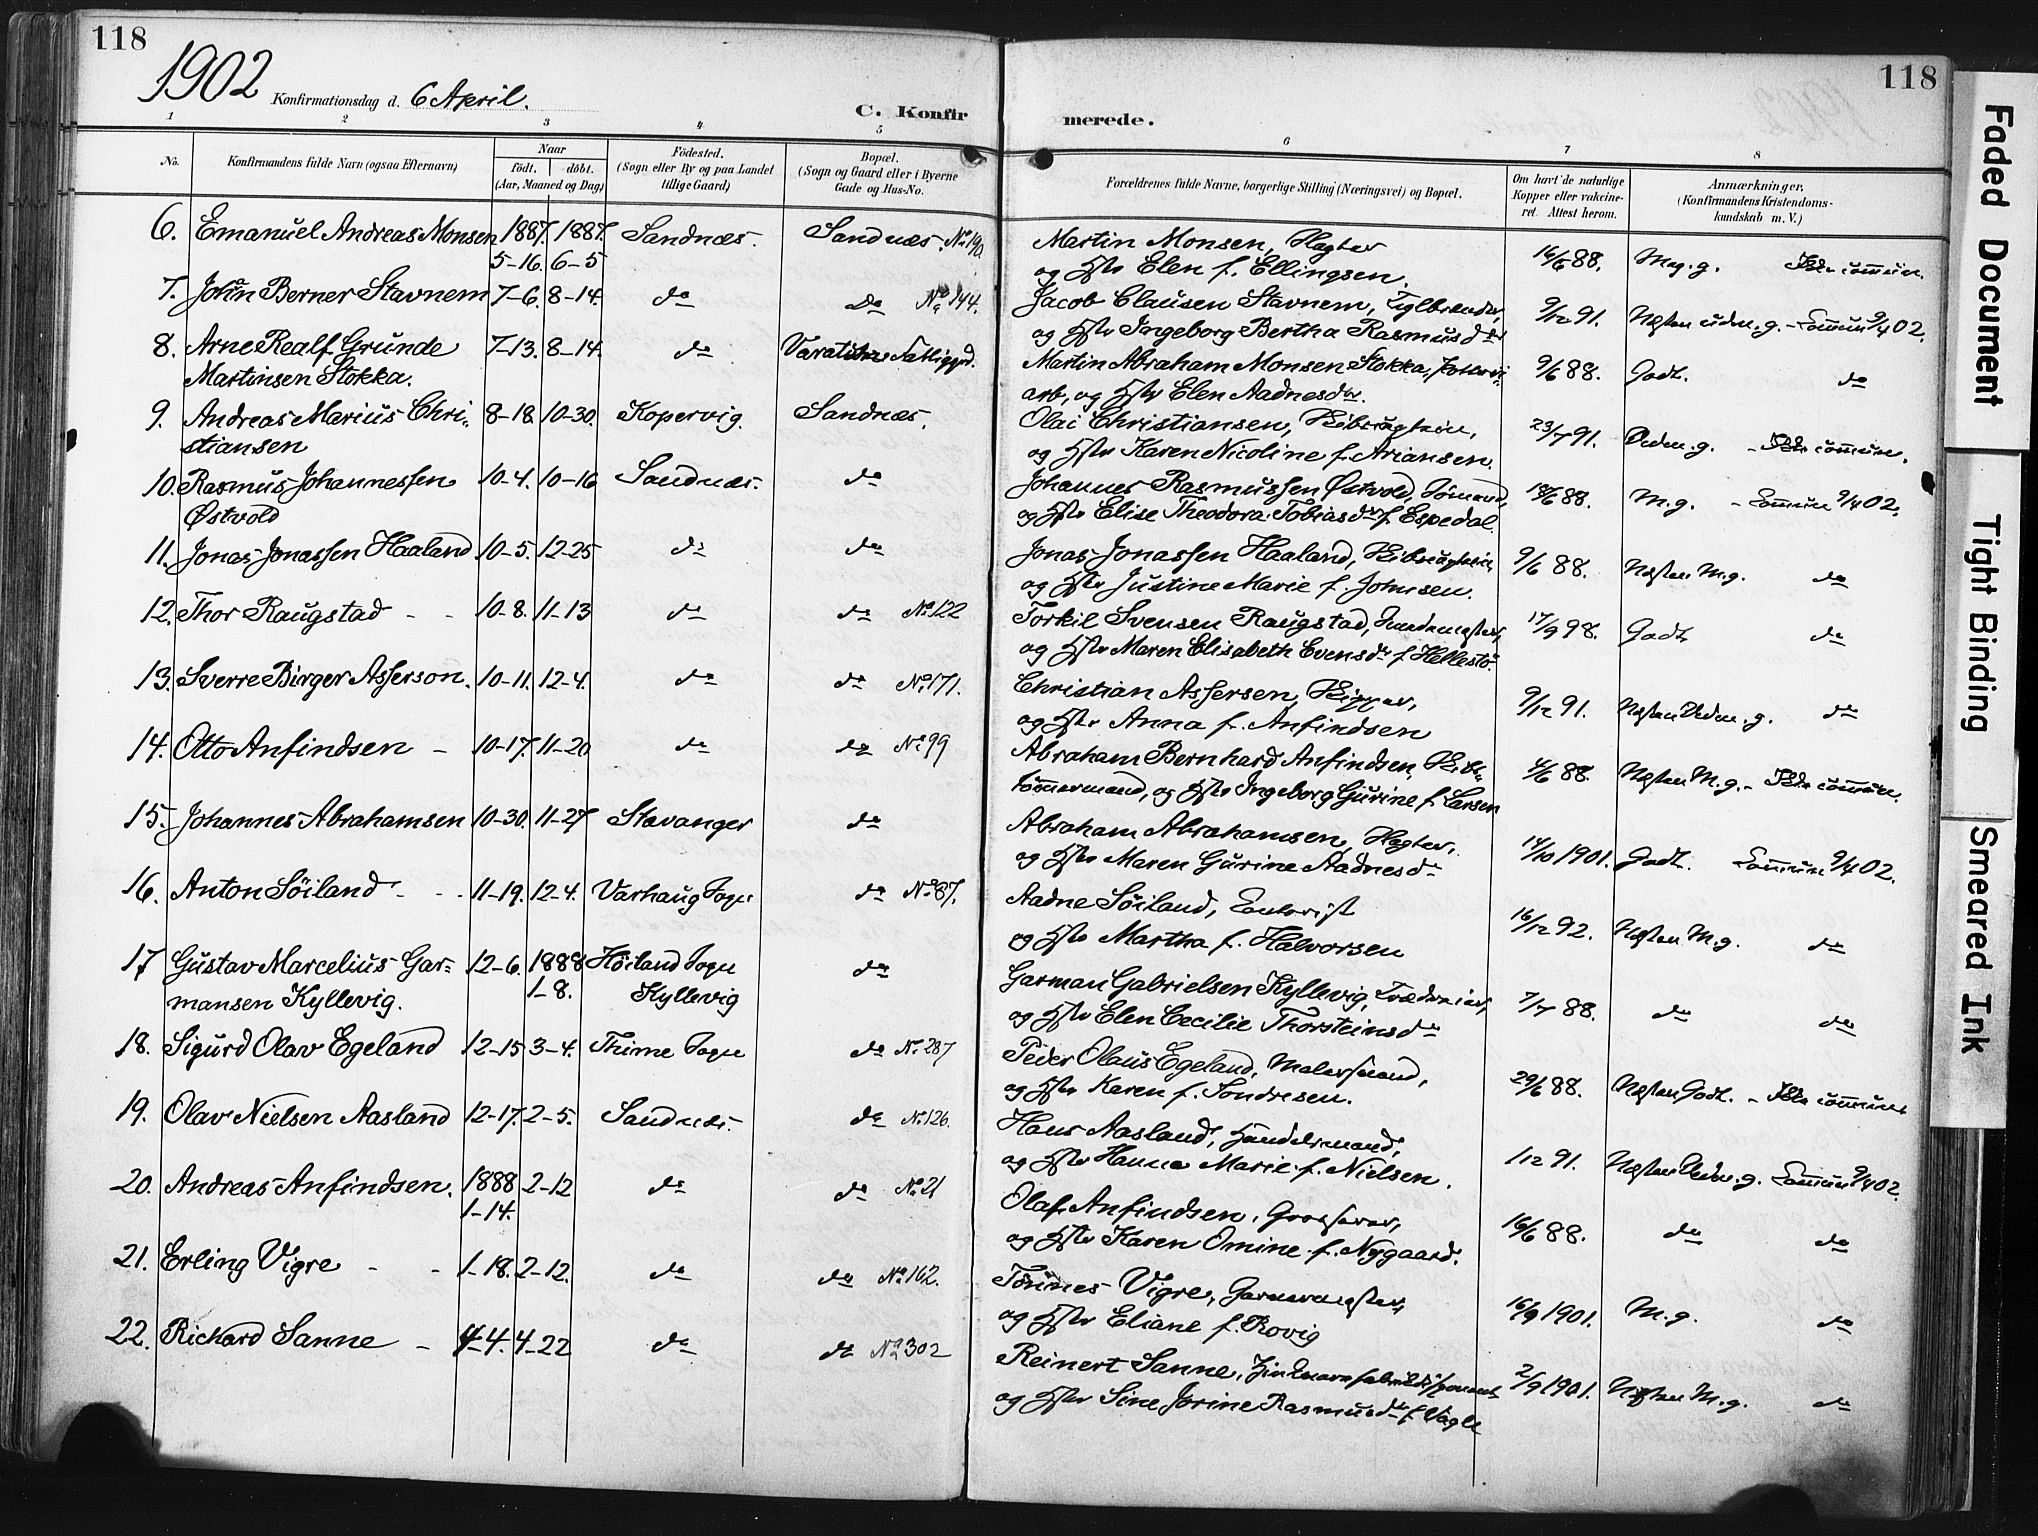 118
1902
Konfirmationsdag d. 6 April.
C. Konfir
merede.
118
1 2 3 4 5 6 7 8
No.
Konfirmandens fulde Navn (ogsaa Efternavn)
Naar
født. døbt.
(Aar, Maaned og Dag)
Fødested.
(Sogn eller By og paa Landet
tillige Gaard)
Bopæl.
(Sogn og Gaard eller i Byerne
Gade og Hus-No.
Forældrenes fulde Navne, borgerlige Stilling (Næringsvei) og Bopæl.
Om havt de naturlige
Kopper eller vakcine-
ret. Attest herom.
Anmærkninger.
(Konfirmandens Kristendoms-
kundskab m. V.)
6. Emanuel Andreas Monsen 1887. 1887. Sandnæs. Sandnæs. No 190. Martin Monsen, 16/6 88. Mg. g.
5-16. 6-5 og Hstr Elen f. Ellingsen.
7. John Berner Stavnem 7-6. 8-14. do do No 144. Jacob Clausen Stavnem, 9/12 91. Næsten uden. g. - 9/4 02.
og Hstr Ingeborg Bertha Rasmusdtr
8. Arne Realf Grunde 7-13. 8-14. do Martin Abraham Monsen Stokka, 9/6 88. Godt. do
Martinsen Stokka. arb, og Hstr Elen Aadnesdtr.
9. Andreas Marius Chri- 8-18. 10-30. Kopervig. Sandnæs. Olai Christiansen, 23/7 91. Uden. g.
stiansen og Hstr Karen Nicoline f. Ariansen.
10. Rasmus Johannessen 10-4. 10-16 Sandnæs. do Johannes Rasmussen Østvold, 18/6 88. M. g. - 9/4 02.
Østvold og Hstr Elise Theodora Tobiasdtr f. Espedal
11. Jonas Jonassen Haaland 10-5. 12-25 do do Jonas Jonassen Haaland, 9/6 88. Næsten M. g. do
og Hstr Justine Marie f. Johnsen.
12. Thor Raugstad - - 10-8. 11-13 do do No 122 Torkil Svensen Raugstad, 17/9 98. Godt do
og Hstr Maren Elisabeth Evensdtr f. Hellestø.
13. Sverre Birger Asserson. 10-11. 12-4. do do No 171. Christian Assersen, 9/12 91. Næsten Uden. g. do
og Hstr Anna f. Anfindsen
14. Otto Anfindsen - 10-17. 11-20 do do No 99 Abraham Bernhard Anfindsen, 4/6 88. Næsten M. g. -
tømmermand, og Hstr Ingeborg Gurine f. Larsen
15. Johannes Abrahamsen 10-30. 11-27 Stavanger do Abraham Abrahamsen, 14/10 1901. Godt. 9/4 02.
og Hstr Maren Gurine Aadnesdtr
16. Anton Söiland - - 11-19. 12-4. Varhaug Sogn do No 87. Aadne Söiland, 16/12 92. Næsten M. g. do
og Hstr Martha f. Halvorsen
17 Gustav Marcelius Gar- 12-6. 1888 Høiland Sogn do Garman Gabrielsen Kyllevig, 7/7 88. do do
mansen Kyllevig. 1-8. Kyllevig og Hstr Elen Cecilie Thorsteinsdtr
18. Sigurd Olav Egeland 12-15 3-4. Thime Sogn do No 287 Peder Olaus Egeland, 29/6 88. Næsten Godt. -
og Hstr Karen f. Sondresen.
19. Olav Nielsen Aasland 12-17. 2-5. Sandnæs. do No 126. Hans Aasland, Handelsmand, 1/12 91. Næsten Uden. g. 9/4 02.
og Hstr Hanna Marie f. Nielsen.
20. Andreas Anfindsen. 1888 2-12 do do No 21 Olaf Anfindsen, Grosserer, 16/6 88. do do
1-14. og Hstr Karen Omine f. Nygaard.
21. Erling Vigre - - 1-18. 2-12. do do No 162. Tönnes Vigre, Garvermester, 16/9 1901. M. g. do
og Hstr Eliane f. Rovig
22. Richard Sanne - 4-4. 4-22 do do No 302 Reinert Sanne, 2/9 1901. Næsten M. g. do
og Hstr Sine Jorine Rasmusdtr f. Vagle
Faded Document
Tight Binding
Smeared Ink